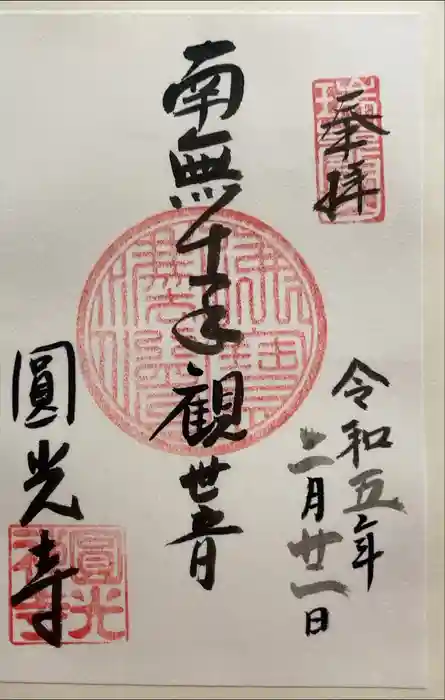 奉拝
令和五年
二月廿一日
南無千手観世音
圓光寺
圓光禅寺